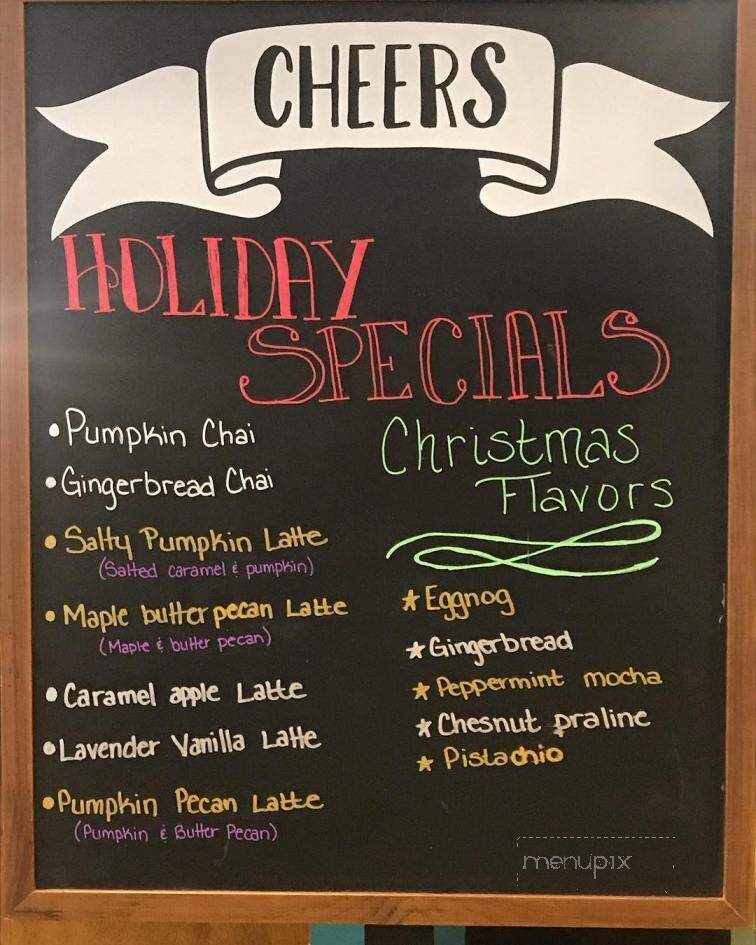 CHEERS
HOLIDAY
SPECIALS
• Pumpkin Chai
• Gingerbread Chai
• Salty Pumpkin Latte
(Salted caramel & pumpkin)
• Maple butter pecan Latte
(Maple & butter pecan)
• Caramel apple Latte
• Lavender Vanilla Latte
• Pumpkin Pecan Latte
(Pumpkin & Butter Pecan)
Christmas
Flavors
★ Eggnog
★ Gingerbread
★ Peppermint mocha
★ Chesnut praline
★ Pistachio
menupix